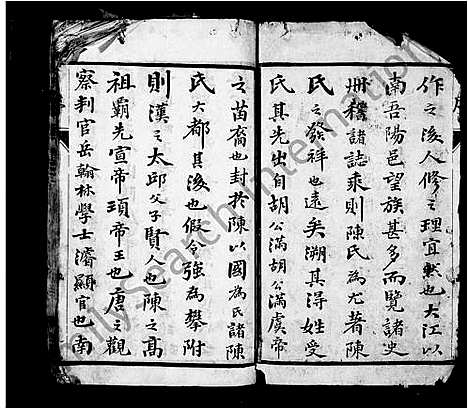 作之後人修之理宜然也大江以
南吾陽邑望族甚多而覽諸史
冊稽諸誌乘則陳氏為尤著陳
氏之發祥也遠矣溯其得姓受
氏其先出自胡公滿胡公滿虞帝
之苗裔也封於陳以國為氏諸陳
氏大都其後也假令強為攀附
則漢之太邱父子賢人也陳之高
祖霸先宣帝頊帝王也唐之觀
察判官岳翰林學士濬顯官也南
FamilySearch International